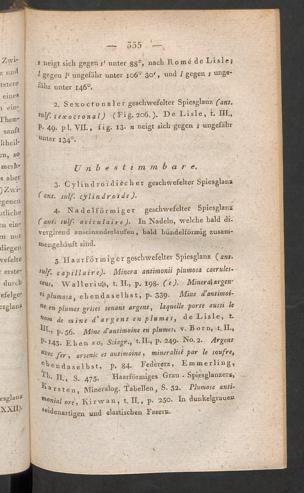 — 335 —
s neigt sich gegen s' unter 88°, nach Romé de Lisle;
l gegen l' ungefähr unter 106° 30', und l gegen s unge-
fähr unter 146°.
2. Sexoctonaler geschwefelter Spiesglanz (ant.
sulf. sexoctonal) (Fig. 206.). De Lisle, t. III.,
p. 49. pl. VII., fig. 13. n neigt sich gegen s ungefähr
unter 134°.
Unbestimmbare.
3. Cylindroidischer geschwefelter Spiesglanz
(ant. sulf. cylindroide).
4. Nadelförmiger geschwefelter Spiesglanz
(ant. sulf. aciculaire). In Nadeln, welche bald di-
vergirend auseinanderlaufen, bald bündelförmig zusam-
mengehäuft sind.
5. Haarförmiger geschwefelter Spiesglanz (ant.
sulf. capillaire). Minera antimonii plumosa coerules-
cens, Wallerius, t. II., p. 198. Minera argen-
ti plumosa, ebendaselbst, p. 339. Mine d'antimoi-
ne en plumes grises tenant argent, laquelle porte aussi le
nom de mine d'argent en plumes, de Lisle, t.
III., p. 56. Mine d'antimoine en plumes, v. Born, t. II.,
p. 143. Eben so, t. II., p. 249. No. 2. Argent
avec fer, arsenic et antimoine, mineralisé par le soufre,
ebendaselbst, p. 84. Federerz, Emmerling,
Th. II., S. 475. Haarförmiges Grau-Spiesglanzerz,
Karsten, Mineralog. Tabellen, S. 52. Plumose anti-
monial ore, Kirwan, t. II., p. 250. In dunkelgrauen
seidenartigen und elastischen Fasern.